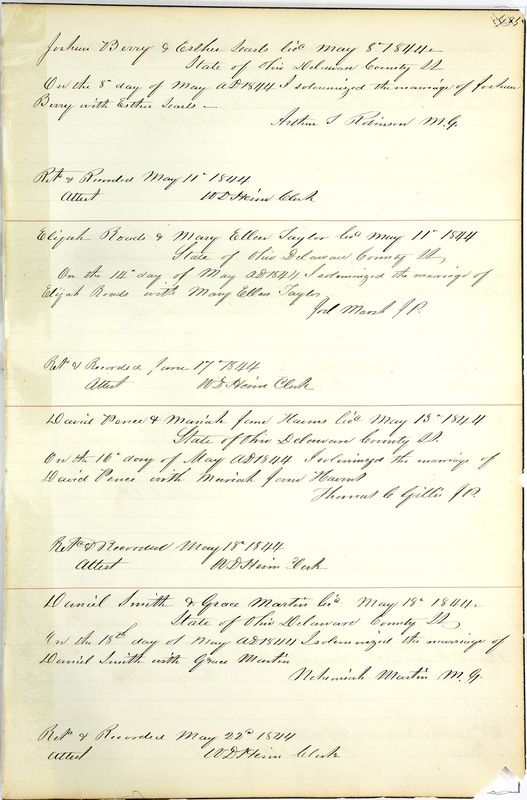 Joshua Berry & Esther Searls Licd May 8th 1844
State of Ohio Delaware County SS
On the 8th day of May AD 1844 I solemnized the marriage of Joshua
Berry with Esther Searls
Arthur S Robinson M.G.
Retd & Recorded May 11th 1844
Attest W D Heim Clerk
Elijah Roads & Mary Ellen Taylor Licd May 11th 1844
State of Ohio Delaware County SS
On the 14th day of May AD 1844 I solemnized the marriage of
Elijah Roads with Mary Ellen Taylor
Joel Marsh J P.
Retd & Recorded June 17th 1844
Attest W D Heim Clerk
David Pence & Mariah Jane Havens Licd May 13th 1844
State of Ohio Delaware County SS.
On the 16th day of May AD 1844 I solemnized the marriage of
David Pence with Mariah Jane
Thomas C Gillis JP.
Retd & Recorded May 18th 1844
Attest W D Heim Clerk
Daniel Smith & Grace Martin Licd May 18th 1844.
State of Ohio Delaware County SS
On the 18th day of May AD 1844 I solemnized the marriage of
Daniel Smith with Grace Martin
Nehemiah Martin M.G.
Retd & Recorded May 22d 1844
Attest W D Heim Clerk